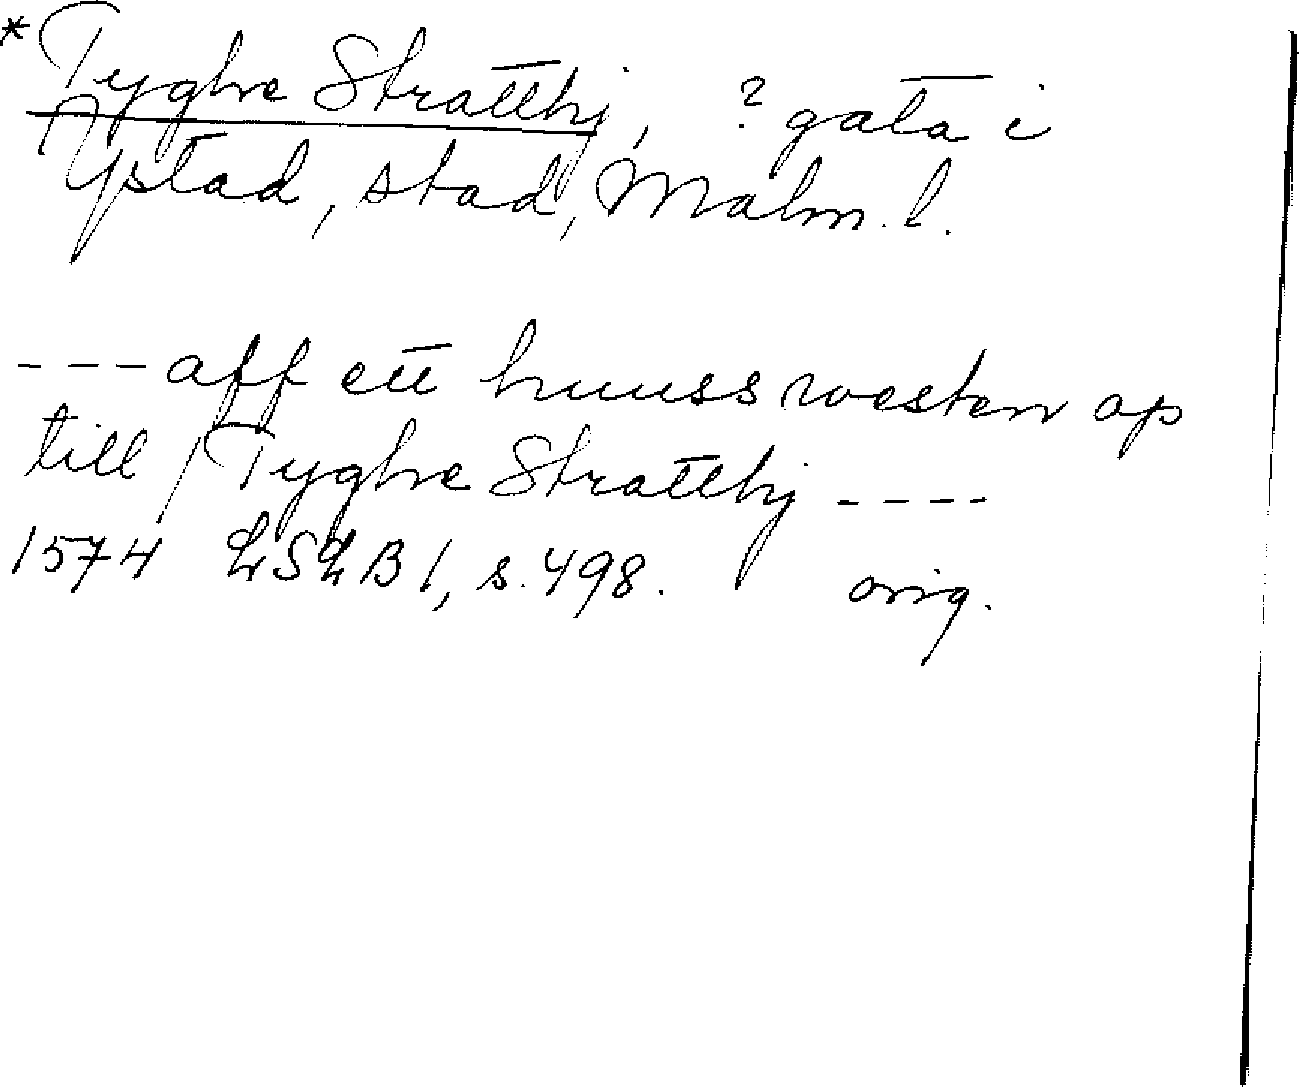 *Tyghe Stratthj, ? gata i
Ystad, stad, Malm. l.
---aff ett huuss westen op
till / Tyghe Strattthj ----
1574 LSLB 1, s. 498. orig.